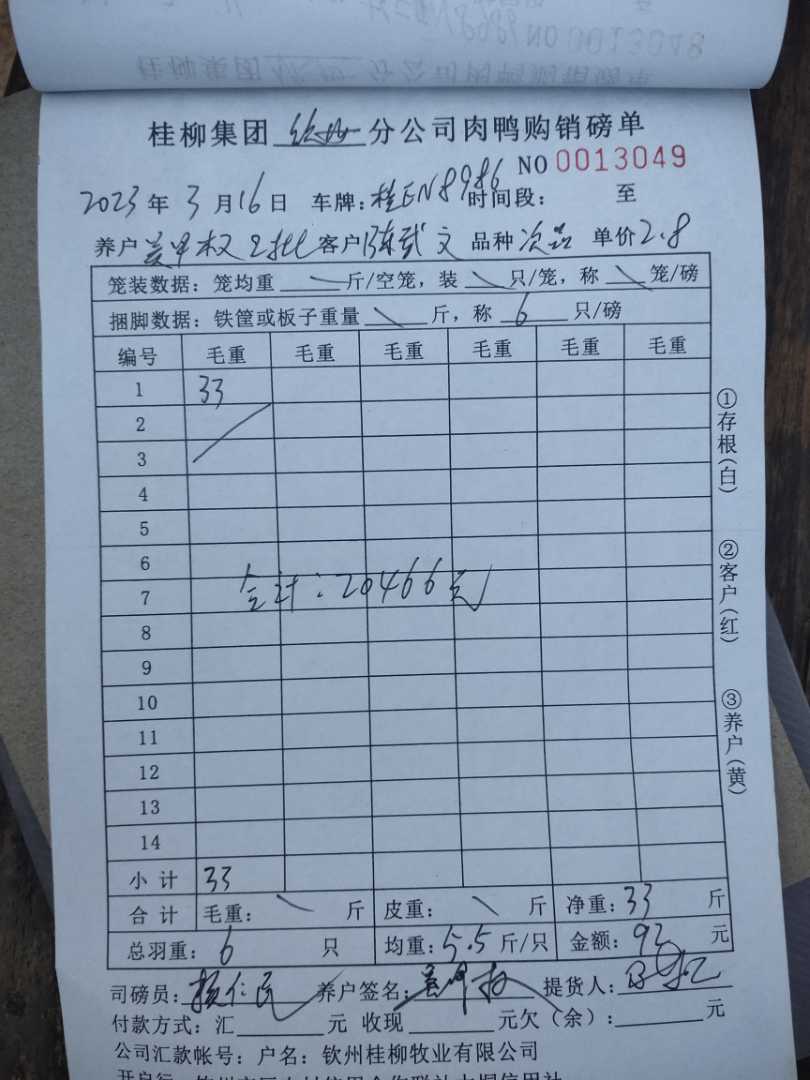 桂柳集团 钦州 分公司肉鸭购销磅单
NO 0013049
2023 年 3 月 16 日 车牌：桂EN8986 时间段： 至
养户 权 2批 客户 陈武文 品种 次品 单价 2.8
笼装数据：笼均重 \ 斤/空笼，装 \ 只/笼，称 \ 笼/磅
捆脚数据：铁筐或板子重量 \ 斤，称 6 只/磅
编号 毛重 毛重 毛重 毛重 毛重 毛重
1 33
2
3
4
5
6
7 合计：20466元
8
9
10
11
12
13
14
小计 33
合计 毛重： \ 斤 皮重： \ 斤 净重：33 斤
总羽重：6 只 均重：5.5 斤/只 金额：92 元
司磅员：杨仁民 养户签名： 提货人：
付款方式：汇 元 收现 元欠（余）： 元
公司汇款帐号：户名：钦州桂柳牧业有限公司
①存根（白）
②客户（红）
③养户（黄）